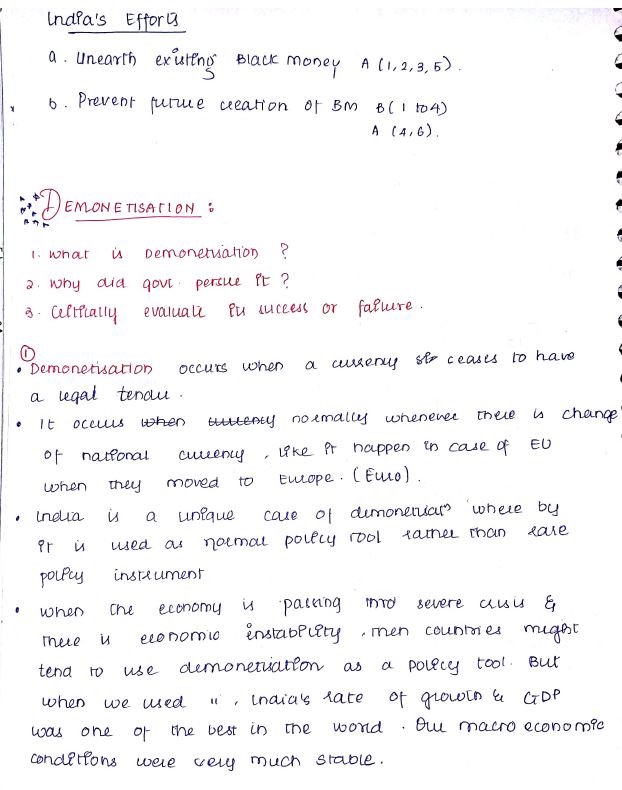 India's Efforts
a. Unearth existing Black money A (1,2,3,5).
b. Prevent future creation of BM B(1 to 4)
A (4,6).
DEMONETISATION :
1. What is Demonetisation ?
2. Why did govt. persue it ?
3. Critically evaluate its success or failure.
①
• Demonetisation occurs when a currency ceases to have
a legal tender.
• It occurs when currency normally whenever there is change
of national currency, like it happen in case of EU
when they moved to Europe. (Euro).
• India is a unique case of demonetisatn where by
it is used as normal policy tool rather than rare
policy instrument
• when the economy is passing into severe crisis &
there is economic instability, then countries might
tend to use demonetisation as a policy tool. But
when we used ", India's rate of growth & GDP
was one of the best in the world. Our macro economic
conditions were very much stable.